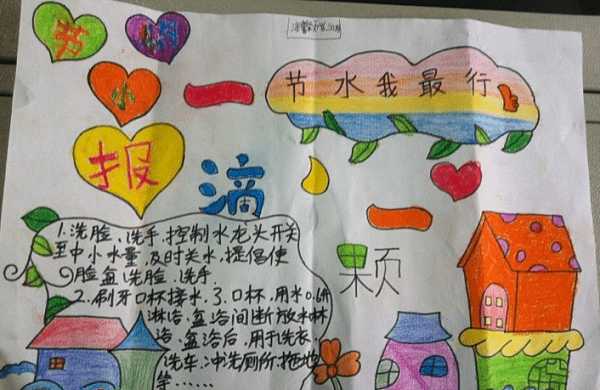 节
小
报
节水我最行
一滴
一颗
1.洗脸、洗手,控制水龙头开关
至中小水量,及时关水,提倡使
脸盆洗脸、洗手.
2.刷牙口杯接水、3.口杯,用水0.6升
淋浴、盆浴间断放水淋
浴、盆浴后,用于洗衣、
洗车、冲洗厕所、拖地
等……